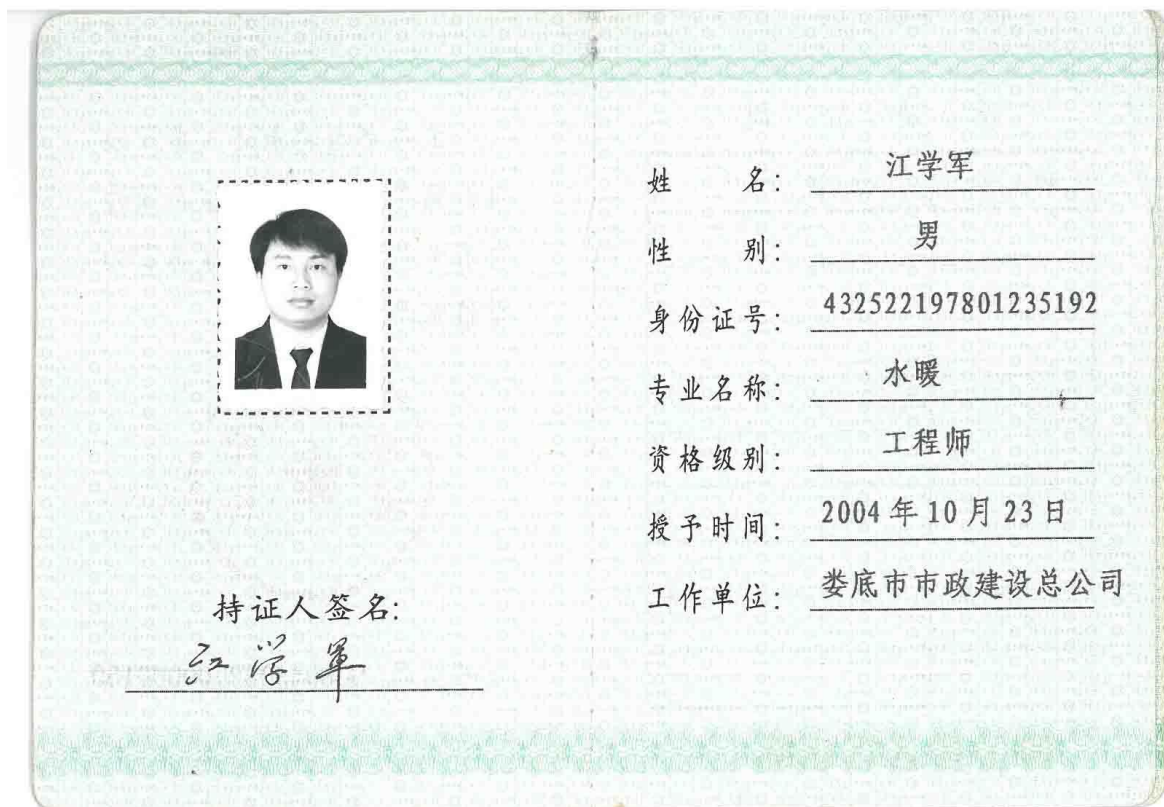 姓 名: 江学军
性 别: 男
身份证号: 432522197801235192
专业名称: 水暖
资格级别: 工程师
授予时间: 2004 年 10 月 23 日
工作单位: 娄底市市政建设总公司
持证人签名:
江学军